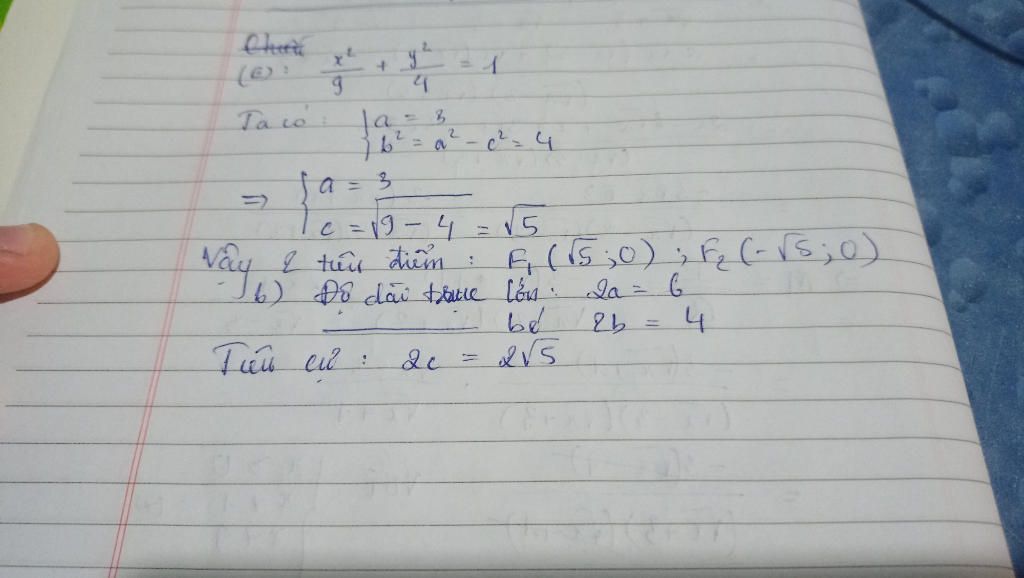 (E): x²/9 + y²/4 = 1
Ta có: { a = 3
b² = a² - c² = 4
⇒ { a = 3
c = √(9 - 4) = √5
Vậy 2 tiêu điểm : F₁(√5;0) ; F₂(-√5;0)
b) Độ dài trục lớn: 2a = 6
bé 2b = 4
Tiêu cự : 2c = 2√5